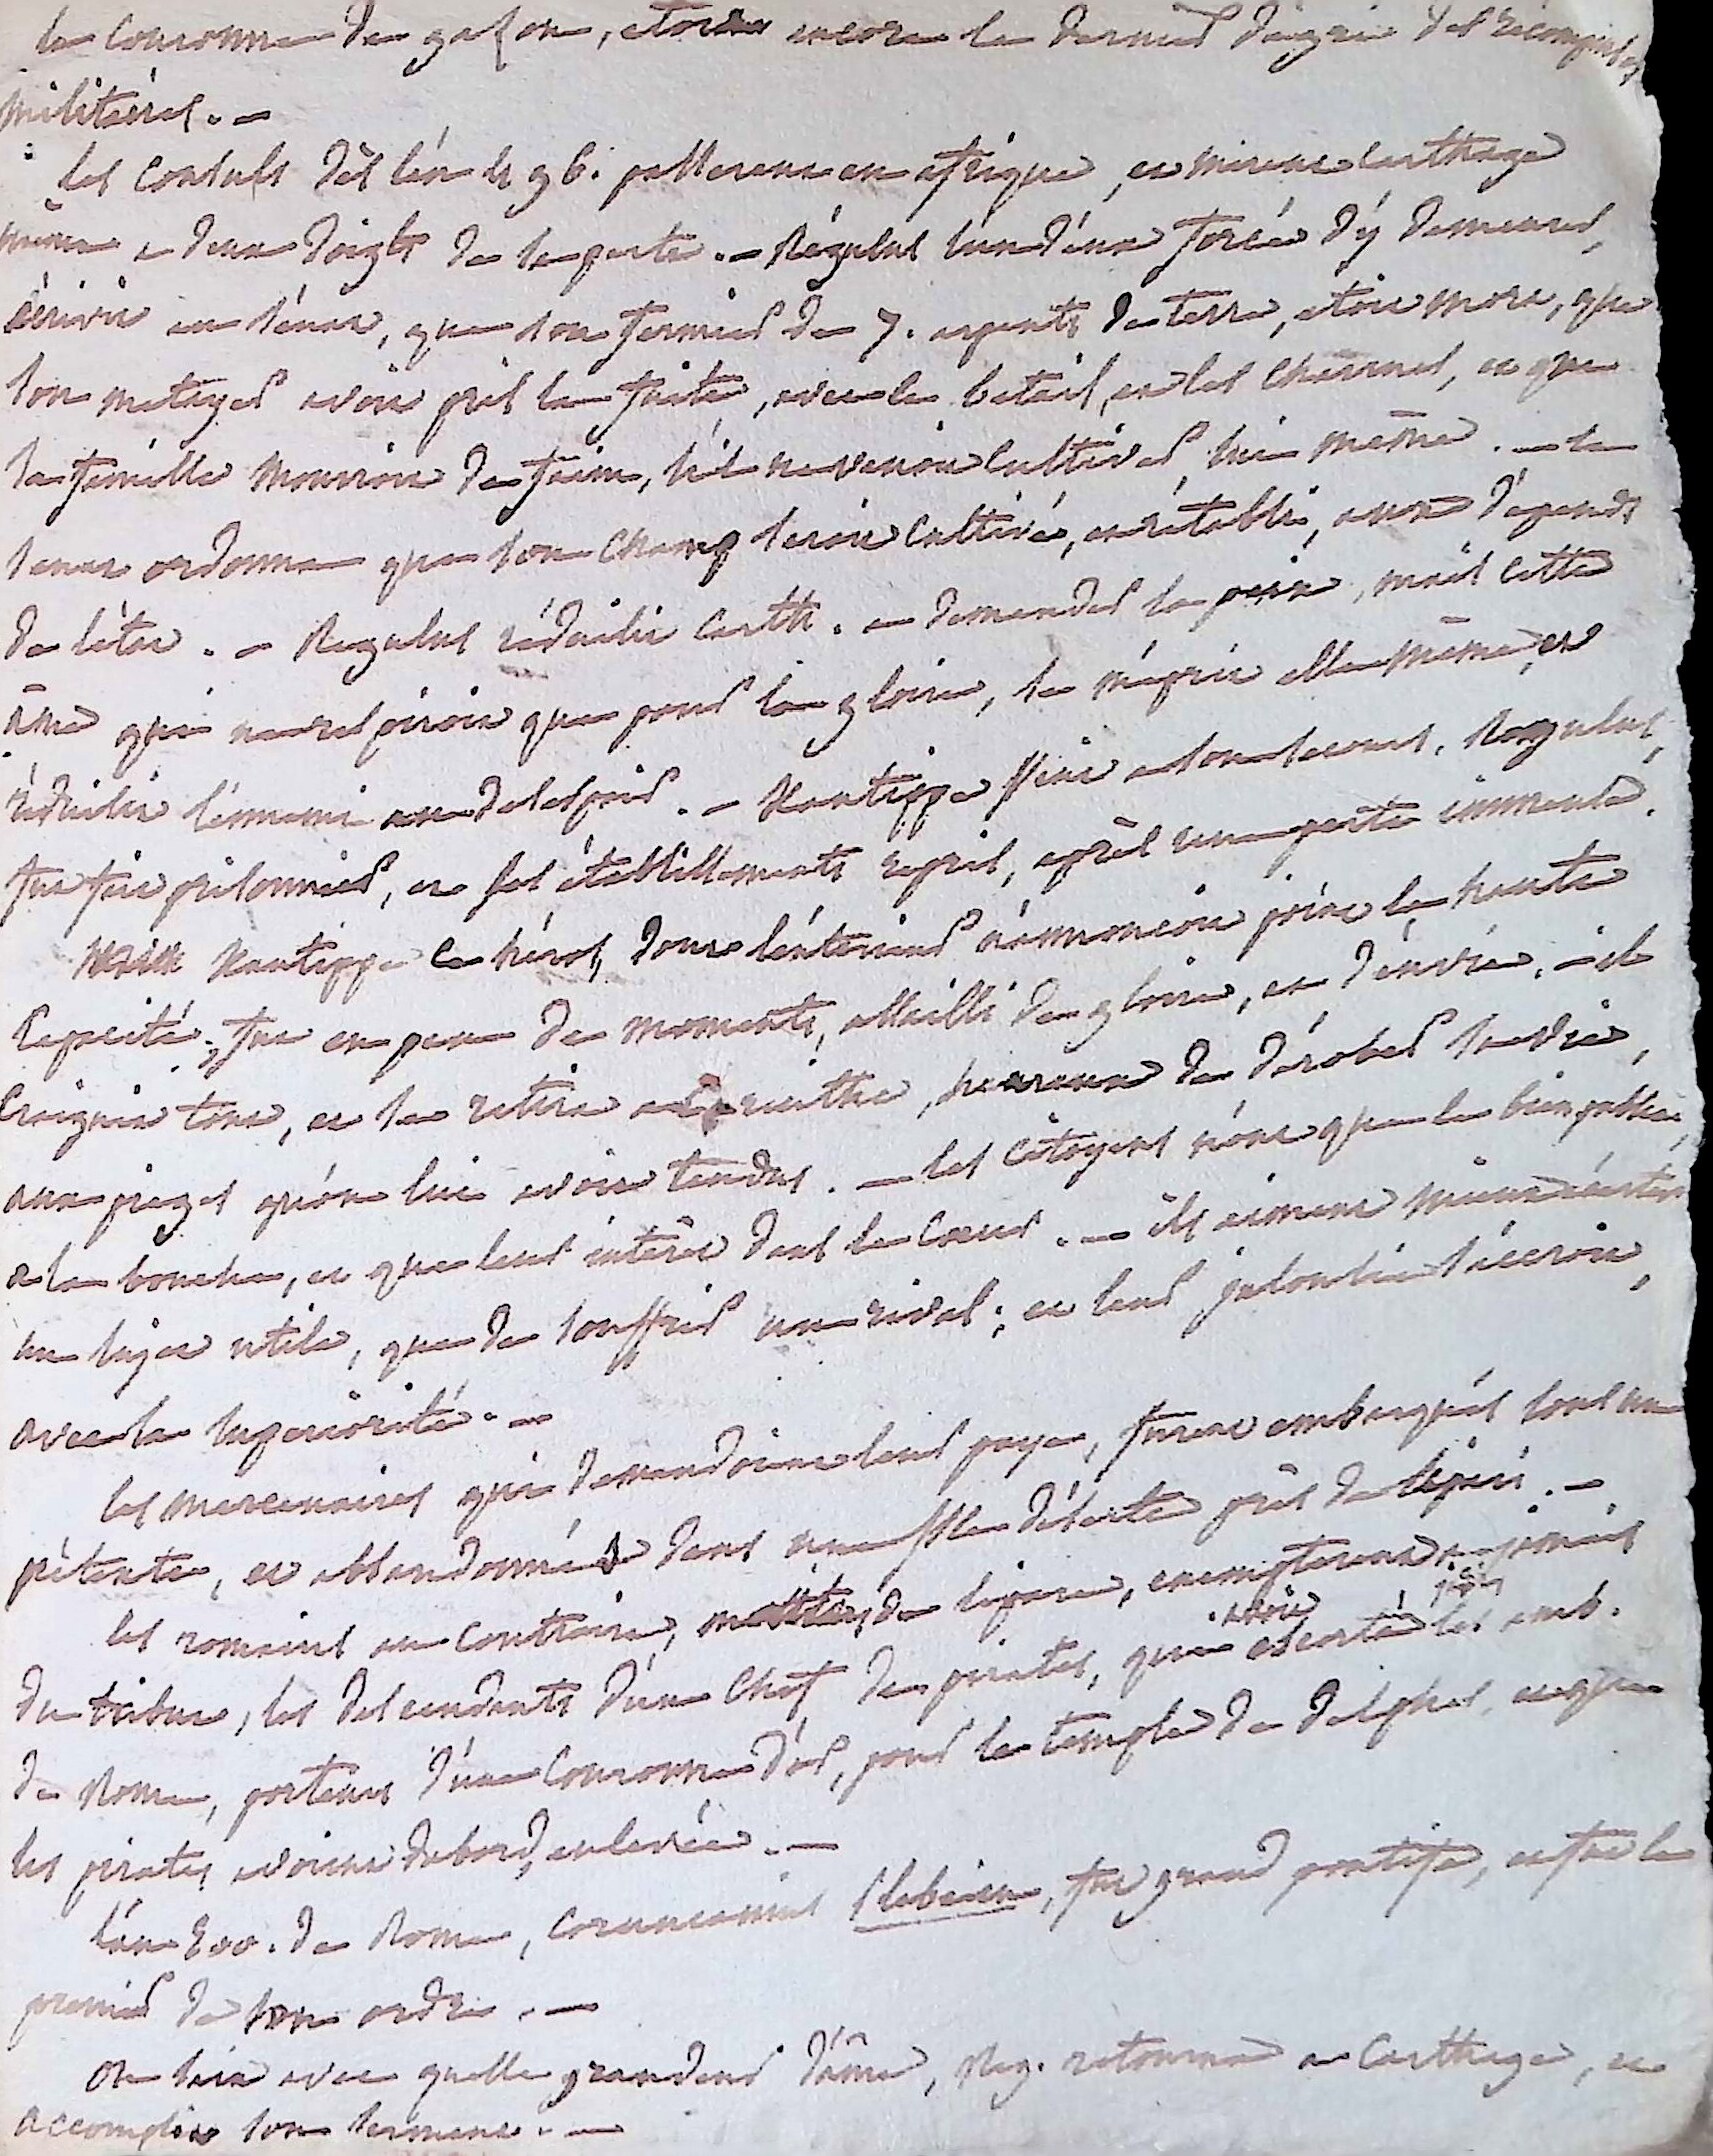 la Couronne de gazon, etoit encore le dernier dégré des récompenses
militaires. —
Les Consuls dès l'an 496. passerent en afrique, et mirent Carthage
même a deux doigts de sa perte. — Régulus l'un d'eux forcé d'y demeurer,
écrivit au sénat, que son fermier de 7. arpents de terre, etoit mort, que
son metayer avoit pris la fuite, avec le betail, et les Charrues, et que
sa famille mourroit de faim, s'il ne venoit Cultiver lui même. — le
senat ordonna que son Champ seroit Cultivé, et rétabli, aux dépends
de l'état. — Regulus réduisit Carth. a demander la paix, mais cette
âme qui ne respiroit que pour la gloire, se méprit elle même, et
réduisit l'ennemi au desespoir. — Xantippe vint a son secours. Regulus,
fut fait prisonnier, et ses établissements repris, après une perte immense.
Xantippe ce héros, dont l'extérieur n'annoncoit point la haute
Capacité, fut en peu de moments, assailli de gloire, et d'envie. — il
Craignit tout, et se retira a Corinthe, heureux de dérober sa vie,
aux pieges qu'on lui avoit tendus. — les Citoyens n'ont que le bien public,
a la bouche, et que leur intérêt dans le Coeur. — ils aiment mieux écarter
un sujet utile, que de souffrir un rival; et leur jalousie s'accroit,
avec la superiorité. —
les mercenaires qui demandoient leur paye, furent embarqués sous un
prétexte, et abbandonnés dans une isle déserte près de Lipari. —
les romains au Contraire, maitres de lipare, exempterent a jamais
du tribut, les descendants d'un Chef de pirates, qui avoit escorté les amb.
de Rome, porteurs d'une Couronne d'or, pour le temple de Delphes, et que
les pirates avoient d'abord enlevée. —
L'an 500. de Rome, Coruncanius Plebeien, fut grand pontife, et fut le
premier de son ordre. —
On sait avec quelle grandeur d'âme, Reg. retourna a Carthage, et
accomplit son serment. —